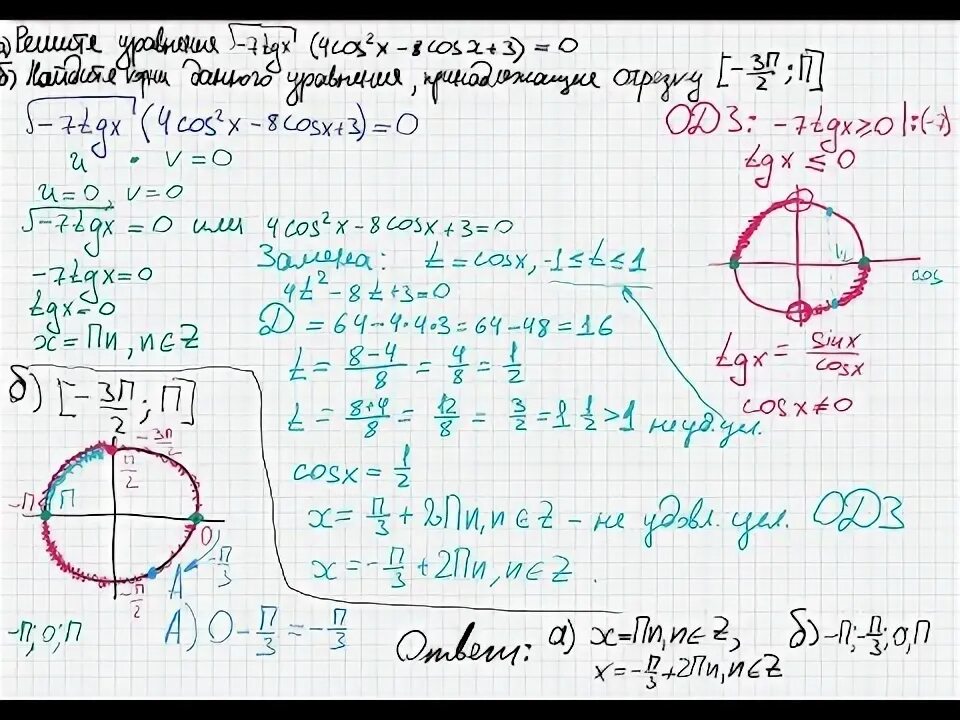 а) Решите уравнения √-7tgx (4cos²x - 8cosx + 3) = 0
б) Найдите корни данного уравнения, принадлежащие отрезку [-3П/2; П]
√-7tgx (4cos²x - 8cosx + 3) = 0
u · v = 0
u = 0, v = 0
√-7tgx = 0 или 4cos²x - 8cosx + 3 = 0
-7tgx = 0
tgx = 0
x = Пn, n∈Z
Замена: t = cosx, -1 ≤ t ≤ 1
4t² - 8t + 3 = 0
D = 64 - 4·4·3 = 64 - 48 = 16
t = (8-4)/8 = 4/8 = 1/2
t = (8+4)/8 = 12/8 = 3/2 = 1 1/2 > 1 не уд. усл.
cosx = 1/2
x = П/3 + 2Пn, n∈Z - не удовл. усл. ОДЗ
x = -П/3 + 2Пn, n∈Z.
ОДЗ: -7tgx ≥ 0 |:(-7)
tgx ≤ 0
1/2
cos
tgx = sinx/cosx
cosx ≠ 0
б) [-3П/2; П]
-3П/2
П/2
-П
П
0
-П/3
-П/2
А
-П; 0; П
А) 0 - П/3 = -П/3
Ответ: а) x = Пn, n∈Z,
x = -П/3 + 2Пn, n∈Z
б) -П; -П/3; 0; П